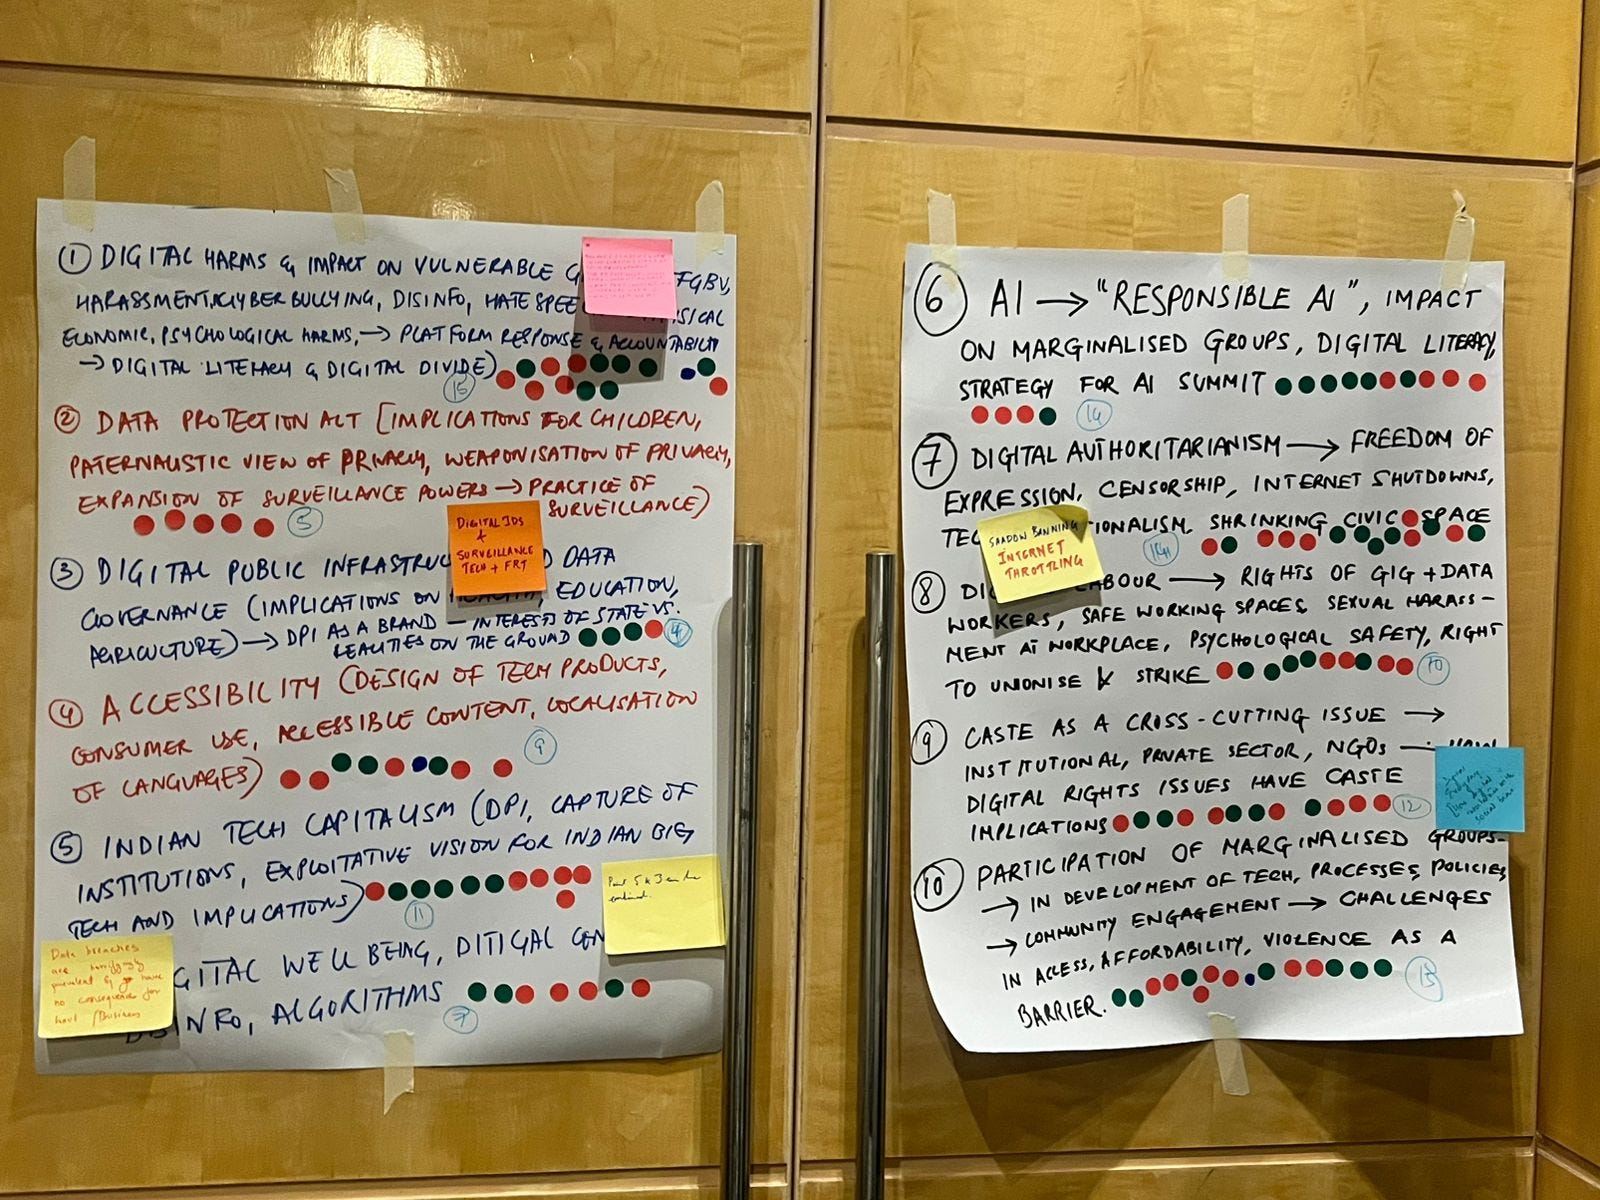 ① DIGITAL HARMS & IMPACT ON VULNERABLE G FGBV,
HARASSMENT, CYBER BULLYING, DISINFO, HATE SPEE SICAL
ECONOMIC, PSYCHOLOGICAL HARMS, → PLATFORM RESPONSE & ACCOUNTABILITY
→ DIGITAL LITERACY & DIGITAL DIVIDE)
15
② DATA PROTECTION ACT [IMPLICATIONS FOR CHILDREN,
PATERNALISTIC VIEW OF PRIVACY, WEAPONISATION OF PRIVACY,
EXPANSION OF SURVEILLANCE POWERS → PRACTICE OF
SURVEILLANCE)
5
DIGITAL IDS
+
SURVEILLANCE
TECH + FRT
③ DIGITAL PUBLIC INFRASTRUC D DATA
GOVERNANCE (IMPLICATIONS ON HEALTH, EDUCATION,
AGRICULTURE) → DPI AS A BRAND — INTERESTS OF STATE VS.
REALITIES ON THE GROUND
4
④ ACCESSIBILITY (DESIGN OF TECH PRODUCTS,
CONSUMER USE, ACCESSIBLE CONTENT, LOCALISATION
OF LANGUAGES)
9
⑤ INDIAN TECH CAPITALISM (DPI, CAPTURE OF
INSTITUTIONS, EXPLOITATIVE VISION FOR INDIAN BIG
TECH AND IMPLICATIONS)
11
5 & 3 can be
combined.
GITAL WELL BEING, DITIGAL CON
DISINFO, ALGORITHMS
7
Data breaches
are horrifyingly
no consequences for
Business
⑥ AI → "RESPONSIBLE AI", IMPACT
ON MARGINALISED GROUPS, DIGITAL LITERACY,
STRATEGY FOR AI SUMMIT
14
⑦ DIGITAL AUTHORITARIANISM → FREEDOM OF
EXPRESSION, CENSORSHIP, INTERNET SHUTDOWNS,
TEC IONALISM, SHRINKING CIVIC SPACE
14
SHADOW BANNING
INTERNET
THROTTLING
⑧ DIG LABOUR → RIGHTS OF GIG + DATA
WORKERS, SAFE WORKING SPACES, SEXUAL HARASS-
MENT AT WORKPLACE, PSYCHOLOGICAL SAFETY, RIGHT
TO UNIONISE & STRIKE
10
⑨ CASTE AS A CROSS-CUTTING ISSUE →
INSTITUTIONAL, PRIVATE SECTOR, NGOs → HOW
DIGITAL RIGHTS ISSUES HAVE CASTE
IMPLICATIONS
12
⑩ PARTICIPATION OF MARGINALISED GROUPS-
→ IN DEVELOPMENT OF TECH, PROCESSES, POLICIES,
→ COMMUNITY ENGAGEMENT → CHALLENGES
IN ACCESS, AFFORDABILITY, VIOLENCE AS A
BARRIER.
15